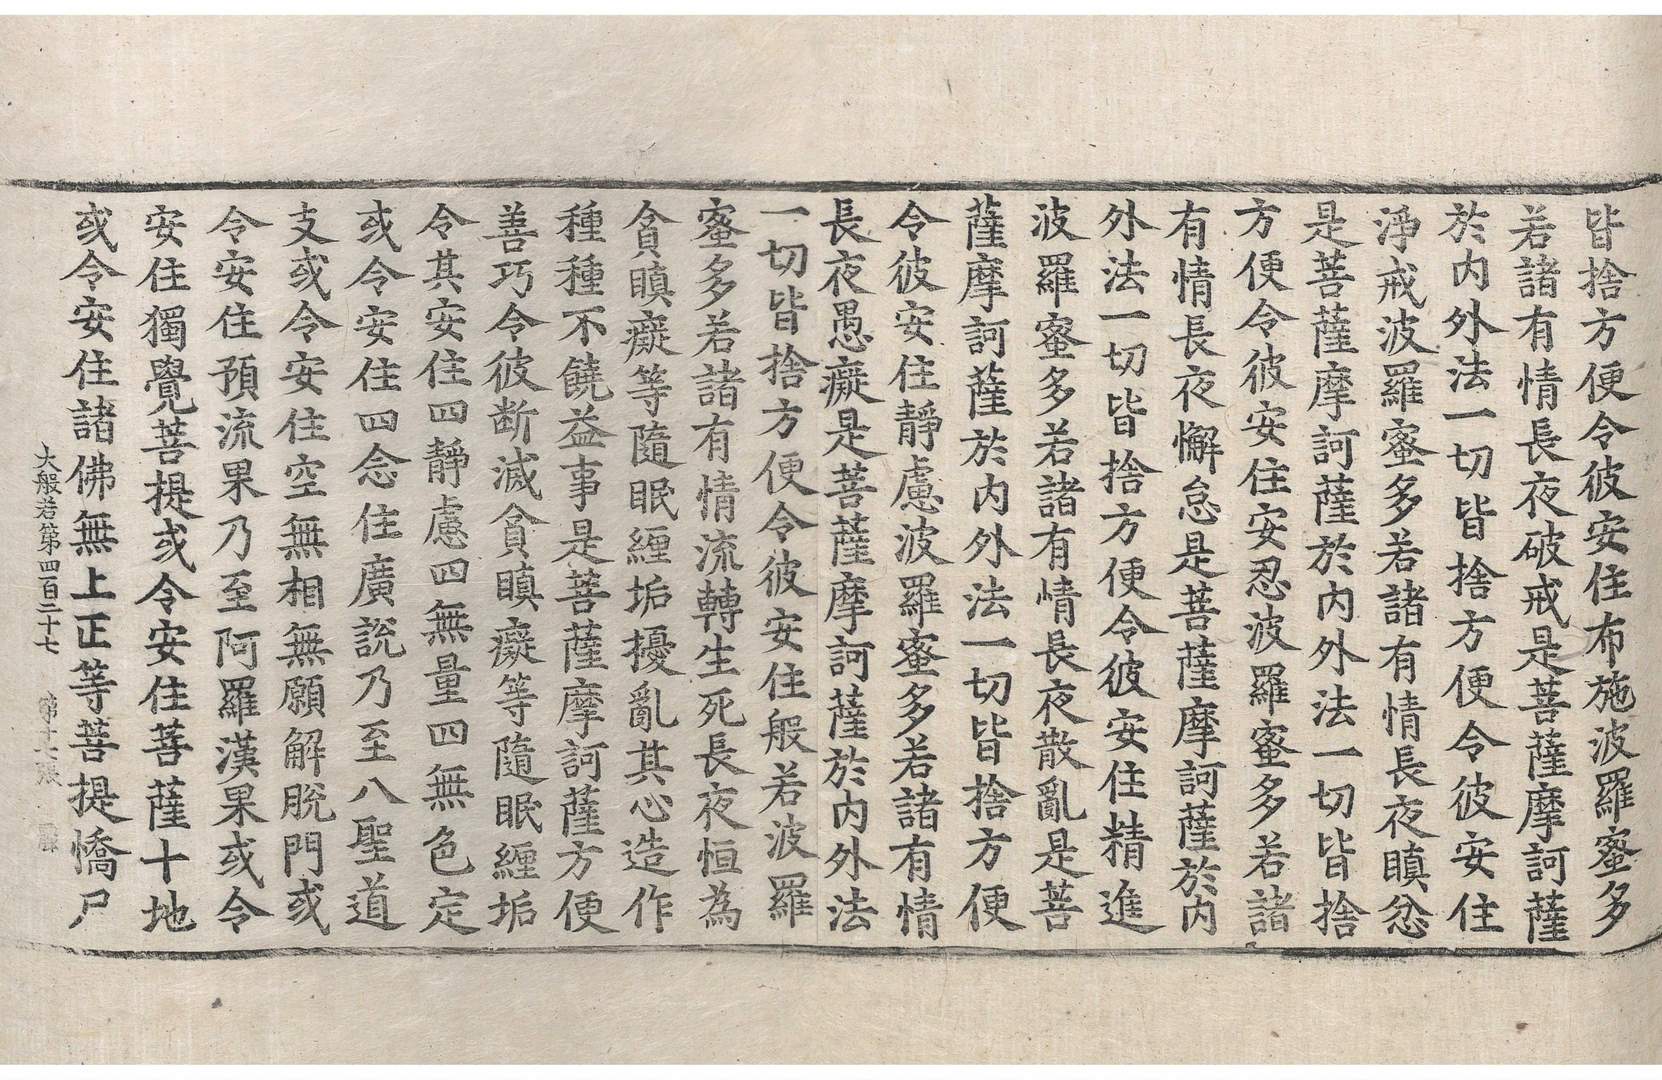 皆捨方便令彼安住布施波羅蜜多
若諸有情長夜破戒是菩薩摩訶薩
於內外法一切皆捨方便令彼安住
淨戒波羅蜜多若諸有情長夜瞋忿
是菩薩摩訶薩於內外法一切皆捨
方便令彼安住安忍波羅蜜多若諸
有情長夜懈怠是菩薩摩訶薩於內
外法一切皆捨方便令彼安住精進
波羅蜜多若諸有情長夜散亂是菩
薩摩訶薩於內外法一切皆捨方便
令彼安住靜慮波羅蜜多若諸有情
長夜愚癡是菩薩摩訶薩於內外法
一切皆捨方便令彼安住般若波羅
蜜多若諸有情流轉生死長夜恒為
貪瞋癡等隨眠纏垢擾亂其心造作
種種不饒益事是菩薩摩訶薩方便
善巧令彼斷滅貪瞋癡等隨眠纏垢
令其安住四靜慮四無量四無色定
或令安住四念住廣說乃至八聖道
支或令安住空無相無願解脫門或
令安住預流果乃至阿羅漢果或令
安住獨覺菩提或令安住菩薩十地
或令安住諸佛無上正等菩提憍尸
大般若第四百二十七 第十七張